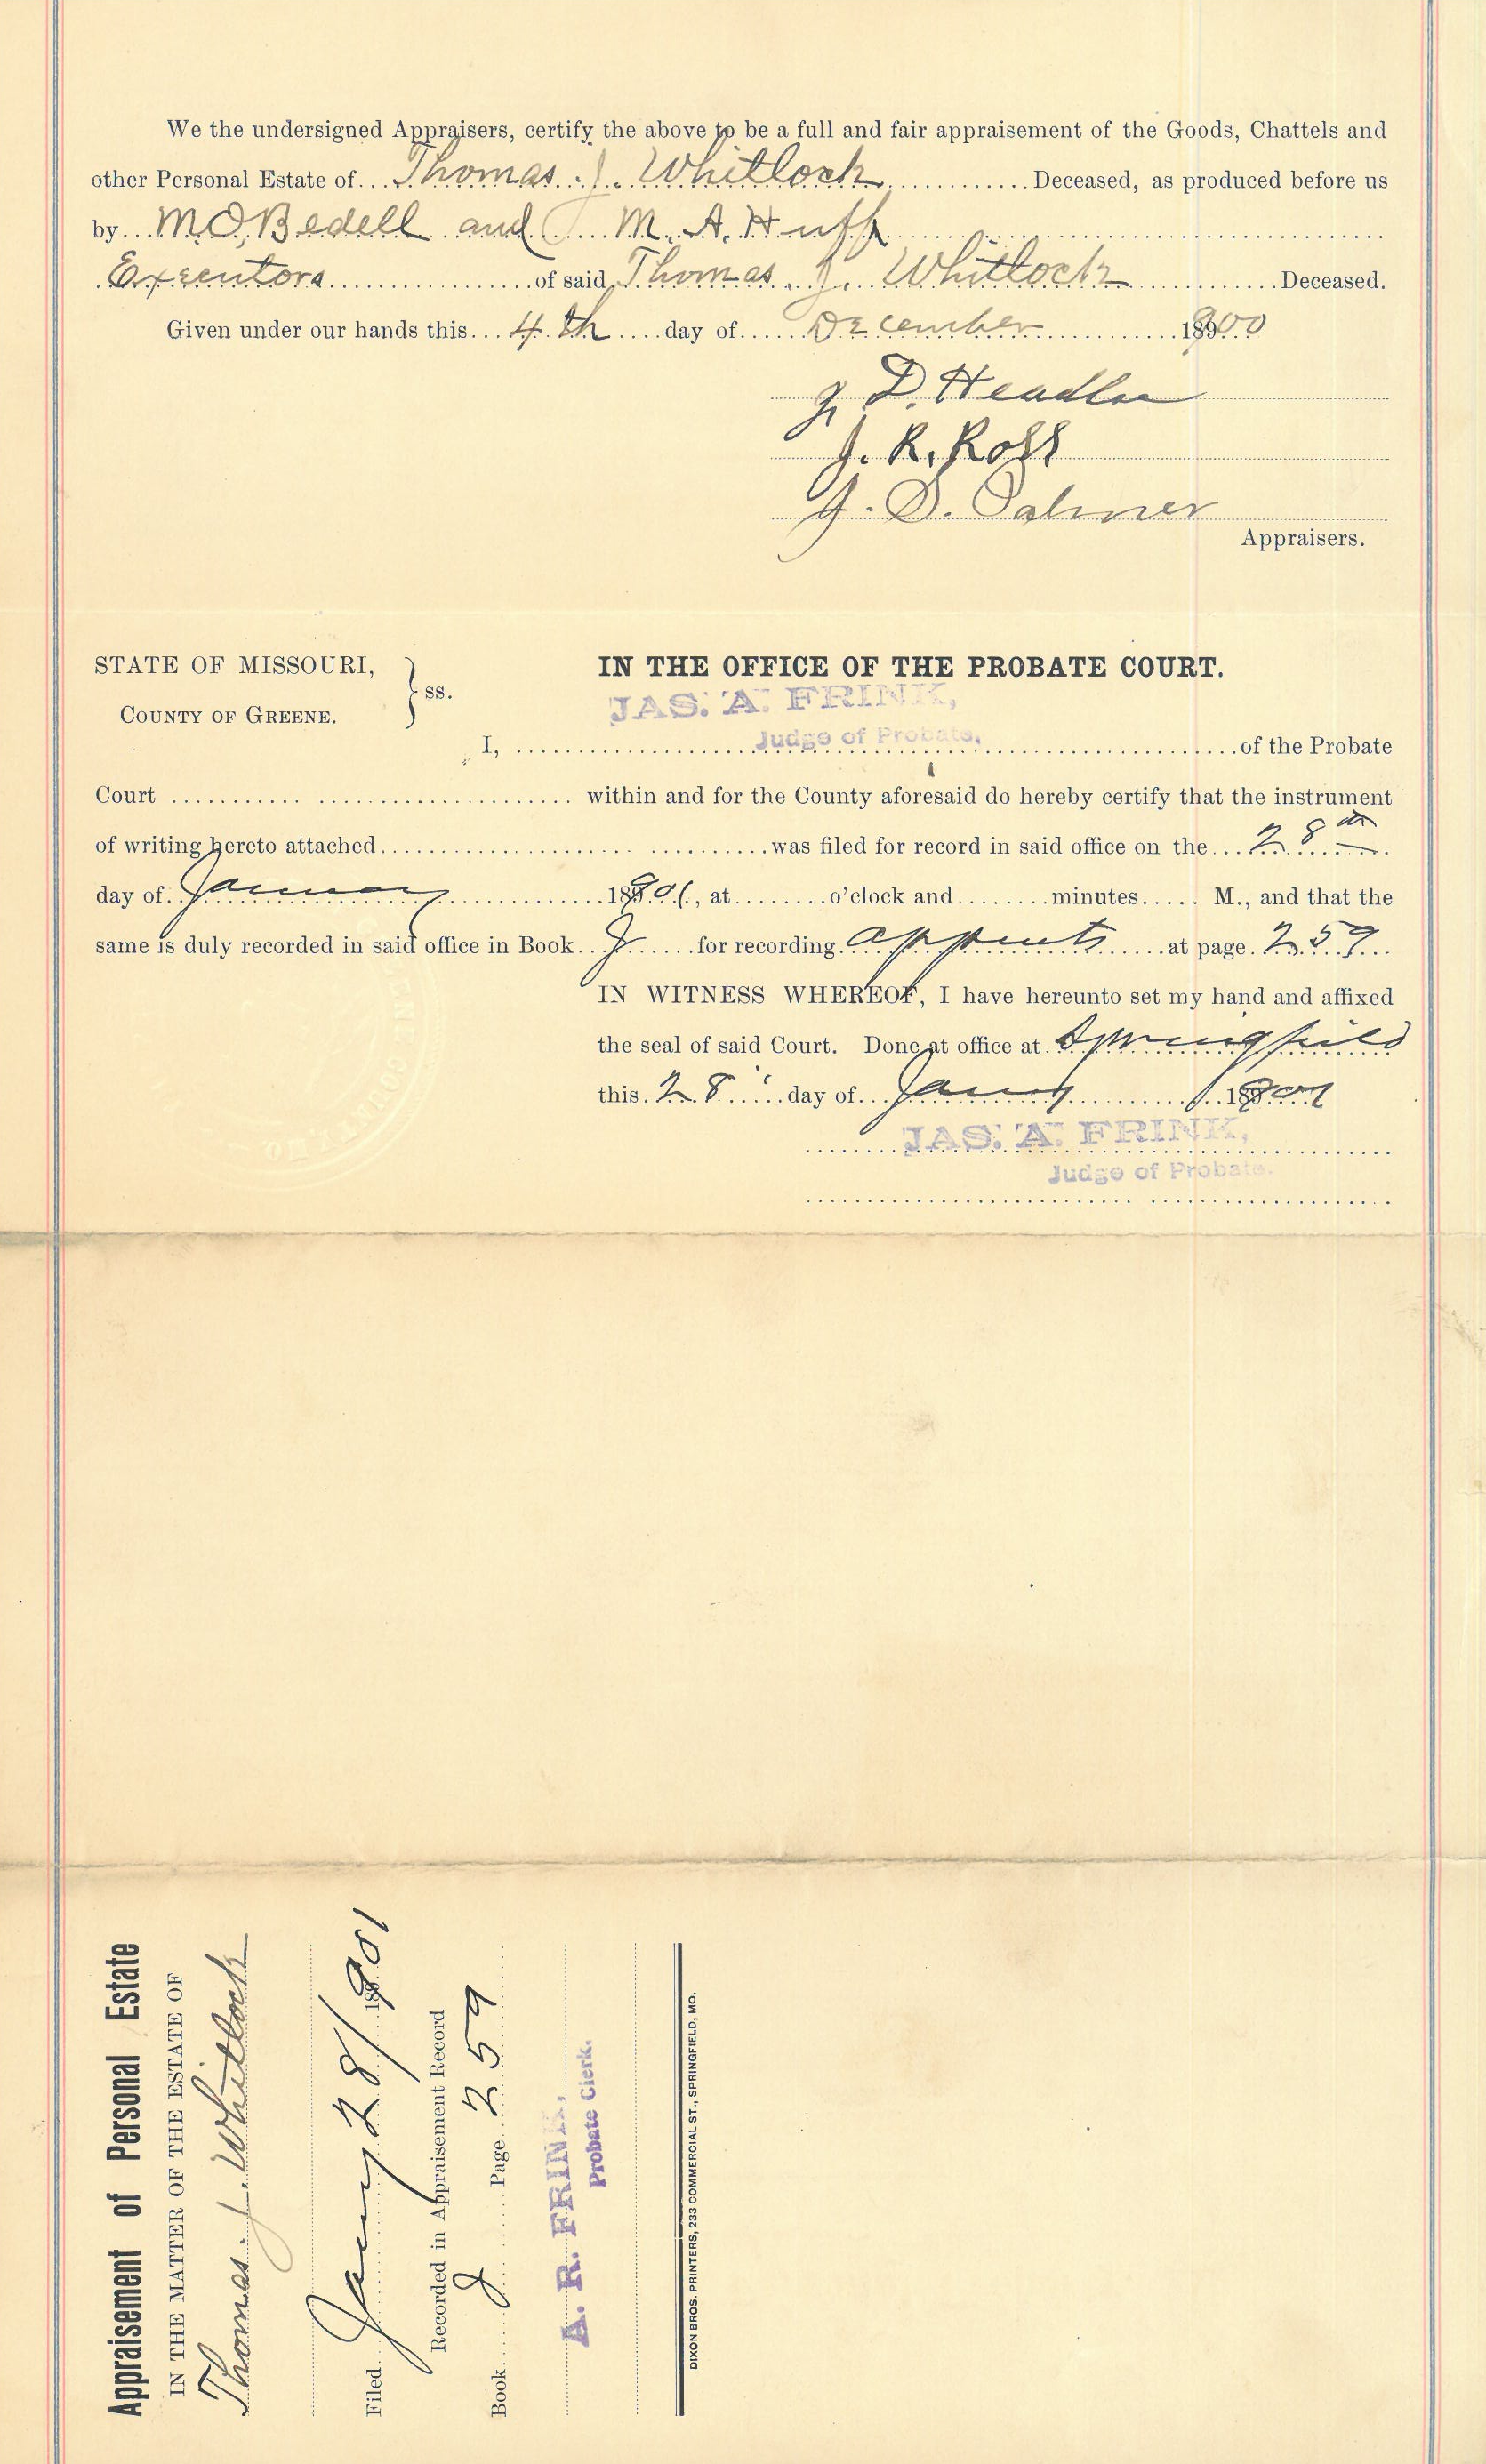 We the undersigned Appraisers, certify the above to be a full and fair appraisement of the Goods, Chattels and
other Personal Estate of Thomas J. Whitlock Deceased, as produced before us
by M. O. Bedell and M. A. Huff
Executors of said Thomas J. Whitlock Deceased.
Given under our hands this 4th day of December 1900
J. D. Headlee
J. R. Ross
J. S. Palmer
Appraisers.
STATE OF MISSOURI,
COUNTY OF GREENE.
ss.
IN THE OFFICE OF THE PROBATE COURT.
JAS. A. FRINK,
Judge of Probate,
I, of the Probate
Court within and for the County aforesaid do hereby certify that the instrument
of writing hereto attached was filed for record in said office on the 28th
day of January 1901, at o'clock and minutes M., and that the
same is duly recorded in said office in Book J for recording at page 259
IN WITNESS WHEREOF, I have hereunto set my hand and affixed
the seal of said Court. Done at office at Springfield
this 28 day of Jany 1901
JAS. A. FRINK,
Judge of Probate.
Appraisement of Personal Estate
IN THE MATTER OF THE ESTATE OF
Thomas J. Whitlock
Filed Jany 28/1901
Recorded in Appraisement Record
Book J Page 259
A. R. FRINK,
Probate Clerk.
DIXON BROS. PRINTERS, 233 COMMERCIAL ST., SPRINGFIELD, MO.